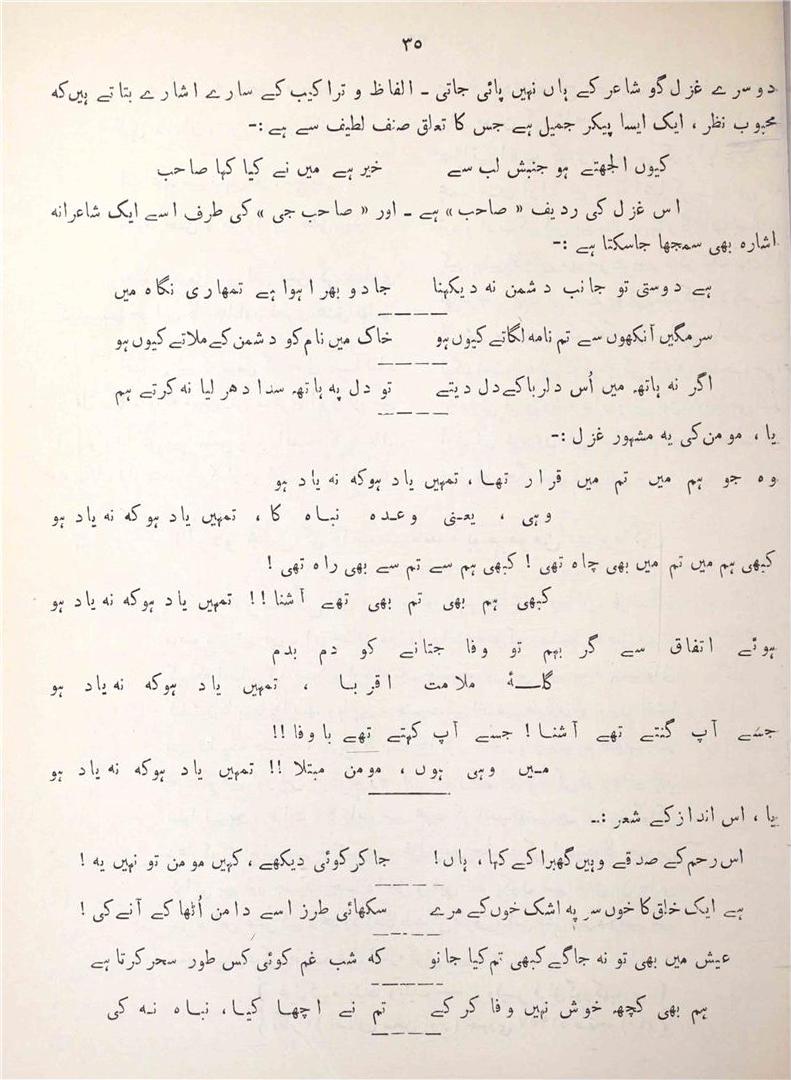 ۳۵
دوسرے غزل گو شاعر کے ہاں نہیں پائی جاتی ۔ الفاظ و تراکیب کے سارے اشارے بتاتے ہیں کہ
محبوب نظر ، ایک ایسا پیکر جمیل ہے جس کا تعلق صنف لطیف سے ہے :-
کیوں الجھتے ہو جنبش لب سے خیر ہے میں نے کیا کہا صاحب
اس غزل کی ردیف « صاحب » ہے ۔ اور « صاحب جی » کی طرف اسے ایک شاعرانہ
اشارہ بھی سمجھا جاسکتا ہے :-
ہے دوستی تو جانب دشمن نہ دیکھنا جادو بھرا ہوا ہے تمھاری نگاہ میں
سرمگیں آنکھوں سے تم نامہ لگاتے کیوں ہو خاک میں نام کو دشمن کے ملاتے کیوں ہو
اگر نہ ہاتھ میں اُس دلربا کے دل دیتے تو دل پہ ہاتھ سدا دھر لیا نہ کرتے ہم
یا ، مومن کی یہ مشہور غزل :-
وہ جو ہم میں تم میں قرار تھا ، تمہیں یاد ہو کہ نہ یاد ہو
وہی ، یعنی وعدہ نباہ کا ، تمہیں یاد ہو کہ نہ یاد ہو
کبھی ہم میں تم میں بھی چاہ تھی ! کبھی ہم سے تم سے بھی راہ تھی !
کبھی ہم بھی تم بھی تھے آشنا !! تمہیں یاد ہو کہ نہ یاد ہو
ہوئے اتفاق سے گر بہم تو وفا جتانے کو دم بدم
گلۂ ملامت اقربا ، تمہیں یاد ہو کہ نہ یاد ہو
جسے آپ گنتے تھے آشنا ! جسے آپ کہتے تھے باوفا !!
میں وہی ہوں ، مومن مبتلا !! تمہیں یاد ہو کہ نہ یاد ہو
یا ، اس انداز کے شعر :-
اس رحم کے صدقے وہیں گھبرا کے کہا ، ہاں ! جا کر کوئی دیکھے ، کہیں مومن تو نہیں یہ !
ہے ایک خلق کا خوں سر پہ اشک خوں کے مرے سکھائی طرز اسے دامن اُٹھا کے آنے کی !
عیش میں بھی تو نہ جاگے کبھی تم کیا جانو کہ شب غم کوئی کس طور سحر کرتا ہے
ہم بھی کچھ خوش نہیں وفا کر کے تم نے اچھا کیا ، نباہ نہ کی